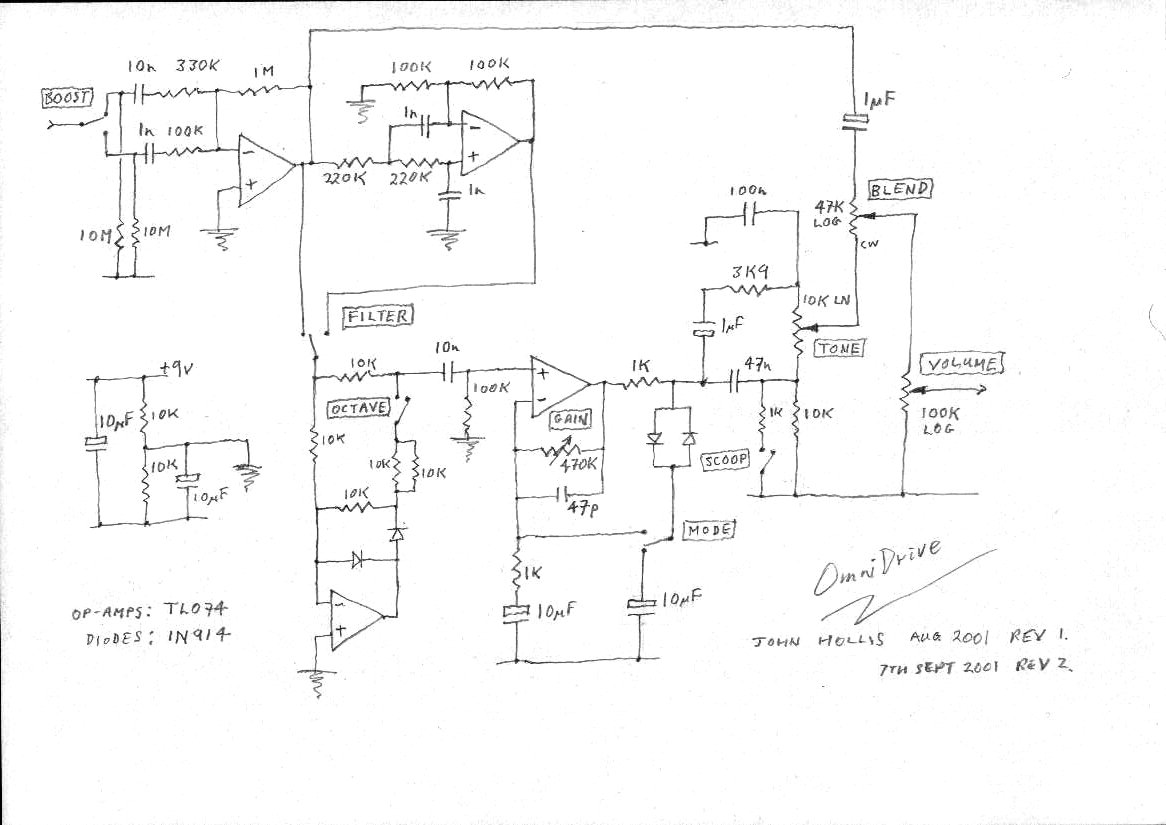 10n 330K 1M
BOOST
1n 100K
-
+
10M 10M
100K 100K
1n
-
+
220K 220K
1n
1µF
47K
LOG
BLEND
CW
100n
3K9
1µF
10K LN
TONE
47n
VOLUME
100K
LOG
FILTER
10K
OCTAVE
10K
10K 10K
10K
-
+
10n
100K
+
-
GAIN
470K
47p
1K
1K 10K
SCOOP
MODE
1K
10µF
10µF
+9V
10µF 10K
10K
10µF
OP-AMPS: TL074
DIODES: 1N914
OmniDrive
JOHN HOLLIS AUG 2001 REV 1.
7TH SEPT 2001 REV 2.